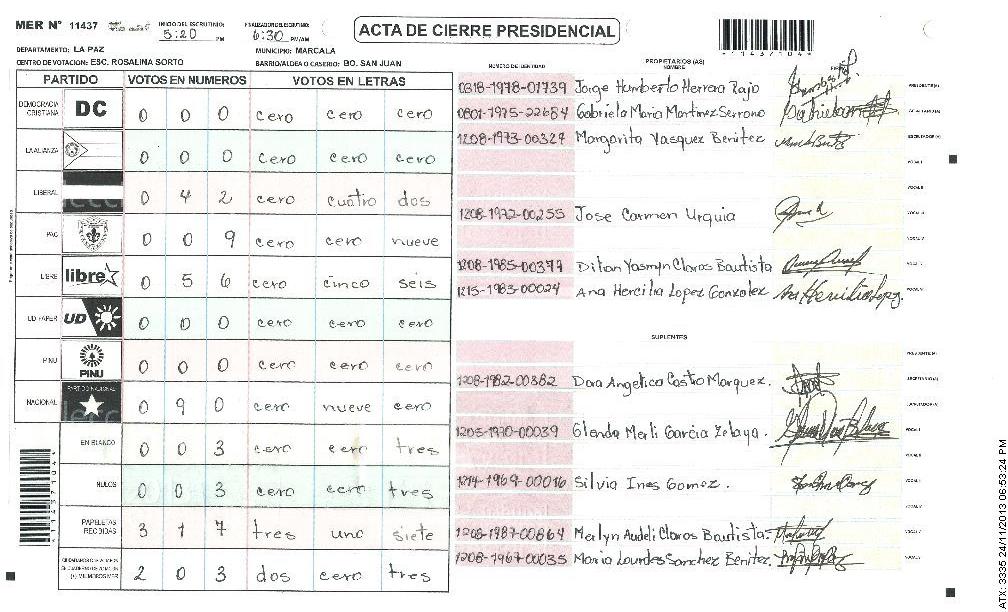 MER N° 11437
INICIO DEL ESCRUTINIO: 5:20 PM
FINALIZACION DEL ESCRUTINIO: 6:30 PM/AM
ACTA DE CIERRE PRESIDENCIAL
*11437104*
DEPARTAMENTO: LA PAZ
MUNICIPIO: MARCALA
CENTRO DE VOTACION: ESC. ROSALINA SORTO
BARRIO/ALDEA O CASERIO: BO. SAN JUAN
PARTIDO VOTOS EN NUMEROS VOTOS EN LETRAS
DEMOCRACIA CRISTIANA DC 0 0 0 cero cero cero
LA ALIANZA 0 0 0 cero cero cero
LIBERAL 0 4 2 cero cuatro dos
PAC 0 0 9 cero cero nueve
LIBRE libre 0 5 6 cero cinco seis
UD FAPER UD 0 0 0 cero cero cero
PINU PINU 0 0 0 cero cero cero
NACIONAL PARTIDO NACIONAL 0 9 0 cero nueve cero
EN BLANCO 0 0 3 cero cero tres
NULOS 0 0 3 cero cero tres
PAPELETAS RECIBIDAS 3 1 7 tres uno siete
(+) MIEMBROS MER 2 0 3 dos cero tres
*11437104*
NUMERO DE IDENTIDAD
PROPIETARIOS (AS)
NOMBRE
FIRMA
0318-1978-01739 Jorge Humberto Herrera Rajo PRESIDENTE(A)
0801-1975-22684 Gabriela Maria Martinez Serrano SECRETARIO(A)
1208-1973-00329 Margarita Vasquez Benitez ESCRUTADOR(A)
VOCAL I
VOCAL II
1208-1972-00255 Jose Carmen Urquia
1208-1985-00377 Dilian Yasmyn Claros Bautista
1215-1983-00024 Ana Hercilia Lopez Gonzalez
SUPLENTES
PRESIDENTE(A)
1208-1982-00382 Dora Angelica Castro Marquez. SECRETARIO(A)
ESCRUTADOR(A)
1205-1970-00039 Glenda Merli Garcia Zelaya. VOCAL I
VOCAL II
1214-1969-00016 Silvia Ines Gomez.
1208-1987-00864 Merlyn Audeli Claros Bautista.
1208-1967-00035 Maria Lourdes Sanchez Benitez.
ATX: 3335 24/11/2013 06:53:24 PM